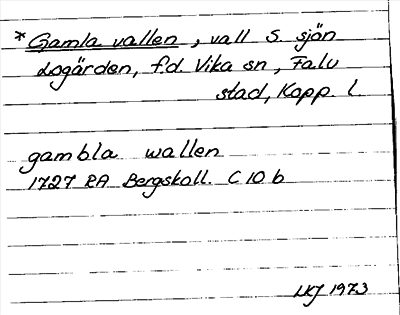 *Gamla vallen, vall S. sjön
Logärden, f.d. Vika sn, Falu
stad, Kopp l
gambla wallen
1727 RA Bergskoll. C 10 b
LKJ 1973